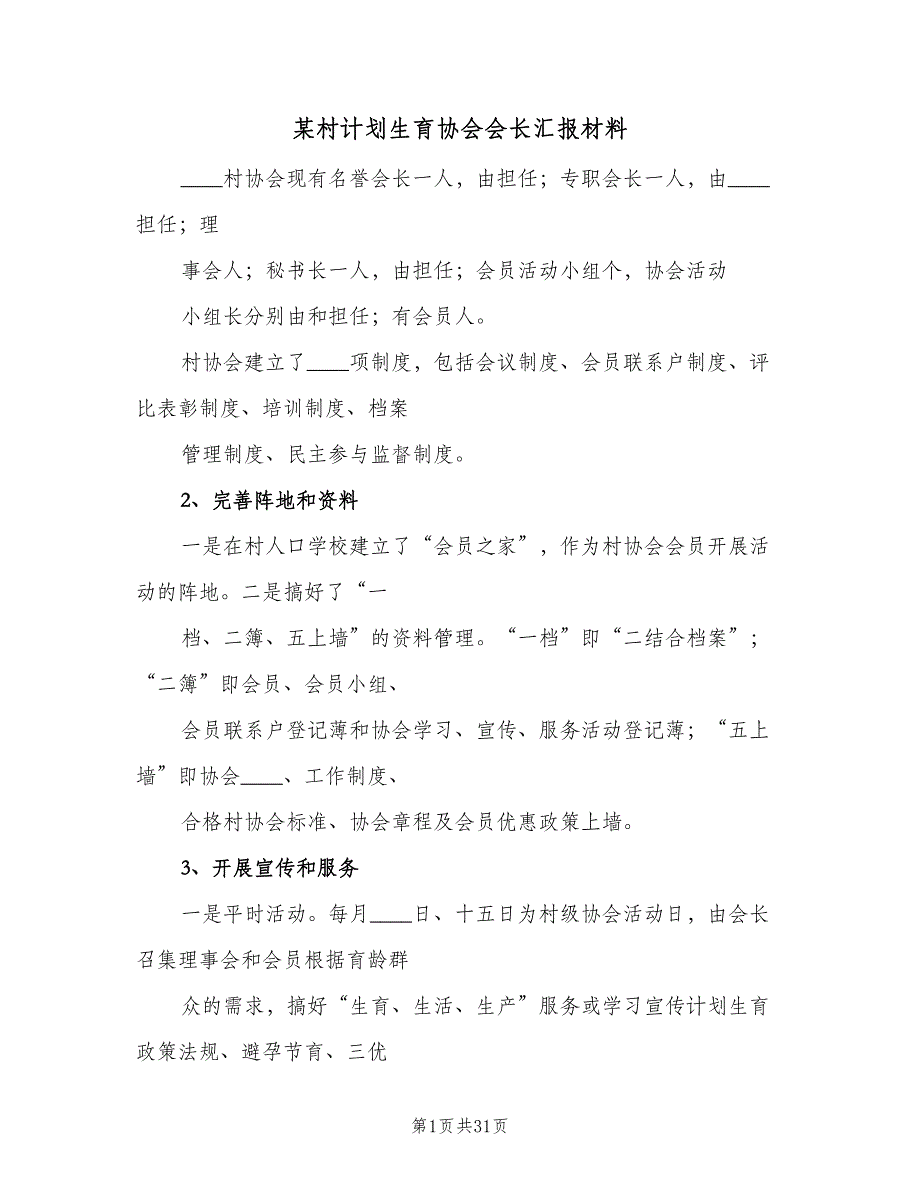 某村计划生育协会会长汇报材料
____村协会现有名誉会长一人，由担任；专职会长一人，由____
担任；理
事会人；秘书长一人，由担任；会员活动小组个，协会活动
小组长分别由和担任；有会员人。
村协会建立了____项制度，包括会议制度、会员联系户制度、评
比表彰制度、培训制度、档案
管理制度、民主参与监督制度。
2、完善阵地和资料
一是在村人口学校建立了“会员之家”，作为村协会会员开展活
动的阵地。二是搞好了“一
档、二簿、五上墙”的资料管理。“一档”即“二结合档案”；
“二簿”即会员、会员小组、
会员联系户登记薄和协会学习、宣传、服务活动登记薄；“五上
墙”即协会____、工作制度、
合格村协会标准、协会章程及会员优惠政策上墙。
3、开展宣传和服务
一是平时活动。每月____日、十五日为村级协会活动日，由会长
召集理事会和会员根据育龄群
众的需求，搞好“生育、生活、生产”服务或学习宣传计划生育
政策法规、避孕节育、三优
第1页共31页